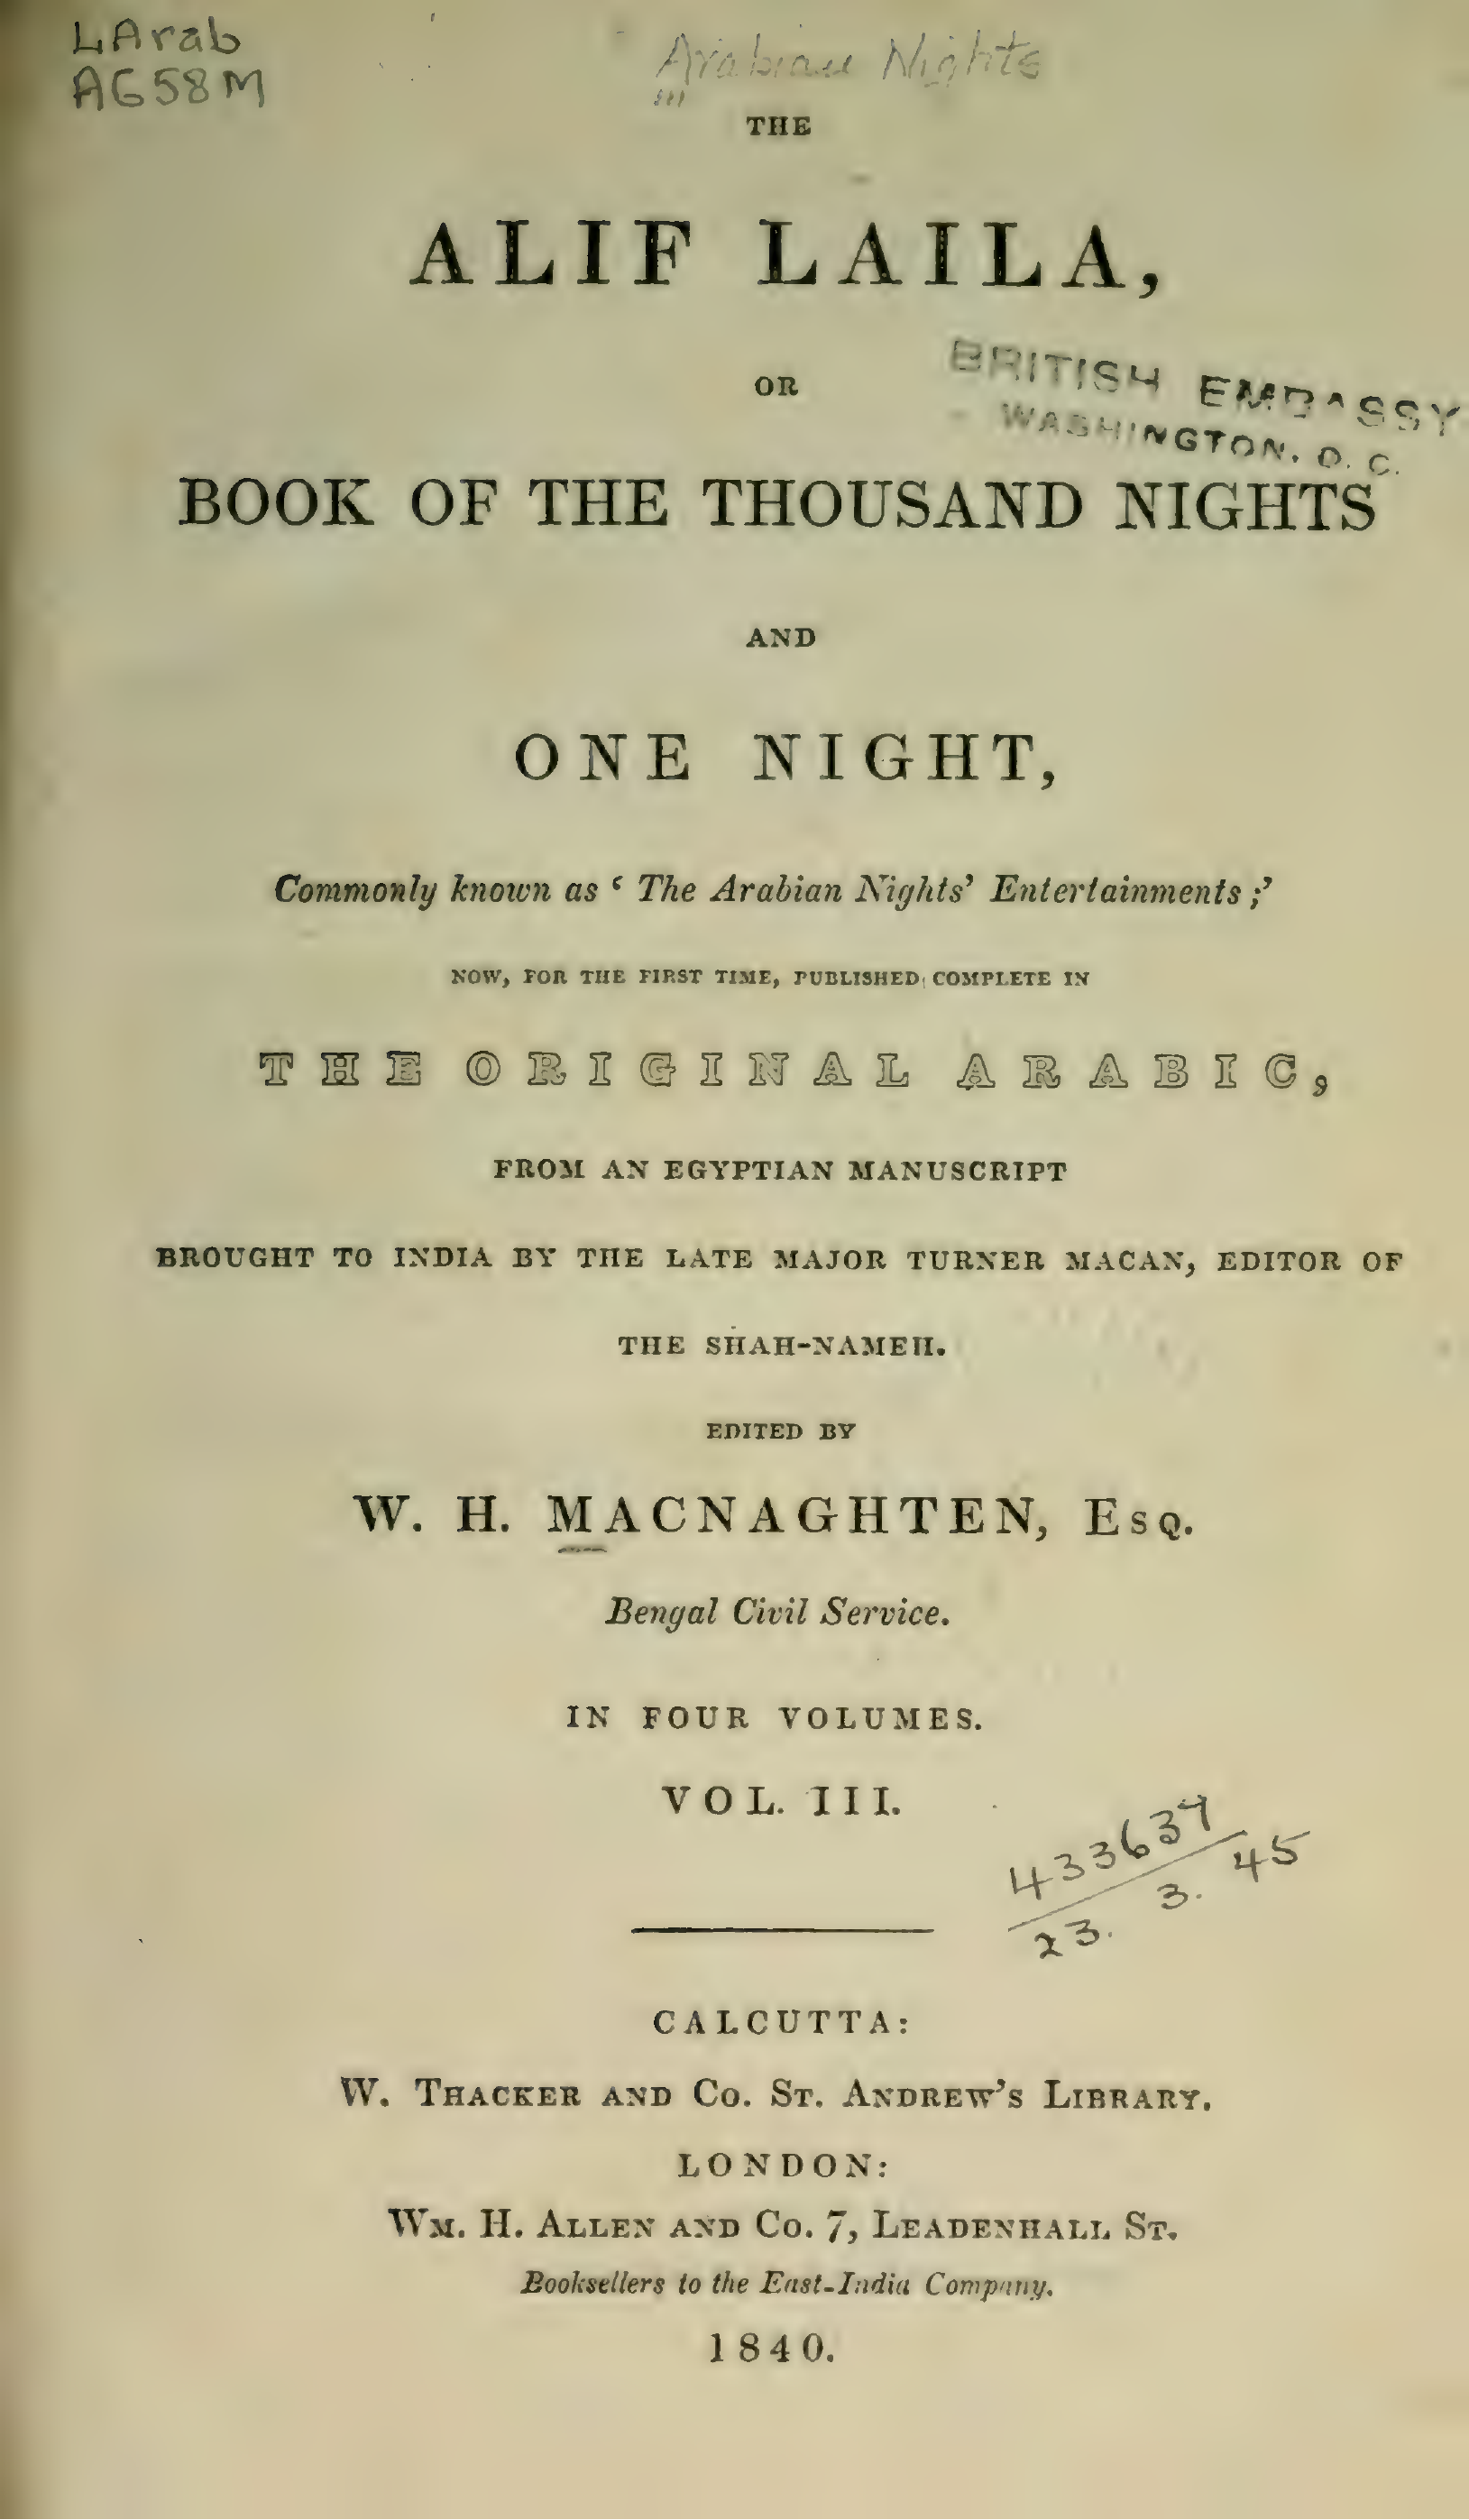 LArab
A658M
Arabian Nights
THE
ALIF LAILA,
OR
BRITISH EMBASSY
WASHINGTON, D. C.
BOOK OF THE THOUSAND NIGHTS
AND
ONE NIGHT,
Commonly known as ‘ The Arabian Nights’ Entertainments ;’
NOW, FOR THE FIRST TIME, PUBLISHED COMPLETE IN
THE ORIGINAL ARABIC,
FROM AN EGYPTIAN MANUSCRIPT
BROUGHT TO INDIA BY THE LATE MAJOR TURNER MACAN, EDITOR OF
THE SHAH-NAMEH.
EDITED BY
W. H. MACNAGHTEN, Esq.
Bengal Civil Service.
IN FOUR VOLUMES.
VOL. III.
433637
23. 3. 45
CALCUTTA:
W. THACKER AND CO. ST. ANDREW’S LIBRARY.
LONDON:
WM. H. ALLEN AND CO. 7, LEADENHALL ST.
Booksellers to the East-India Company.
1840.